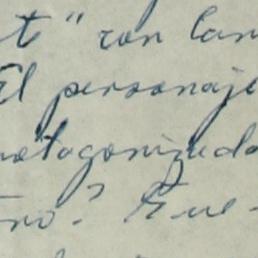 t" con
El personaje
rotagonizado
no? Fue